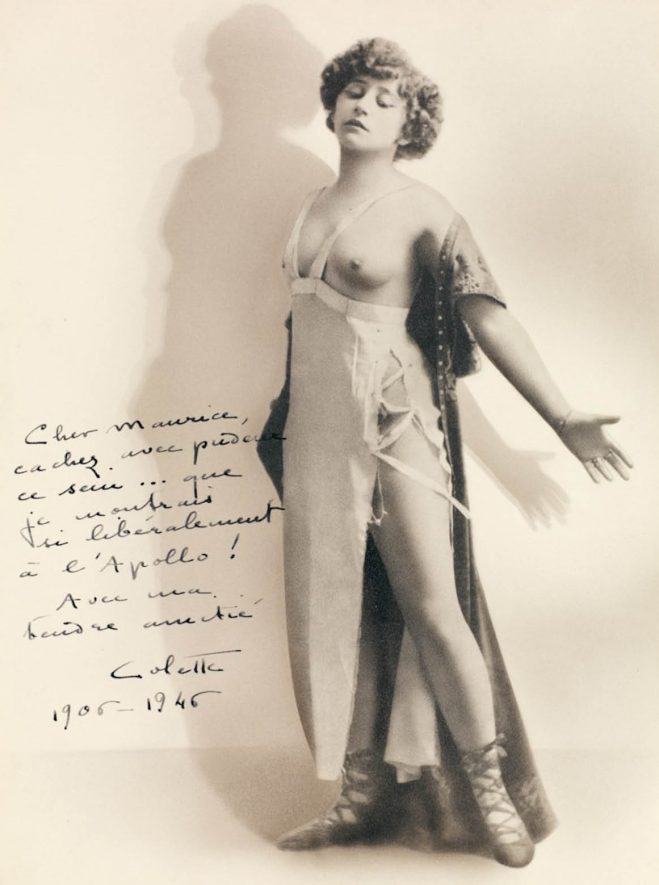 Cher Maurice,
cachez avec pudeur
ce sein... que
je montrais
si libéralement
à l'Apollo !
Avec ma
tendre amitié
Colette
1906-1946